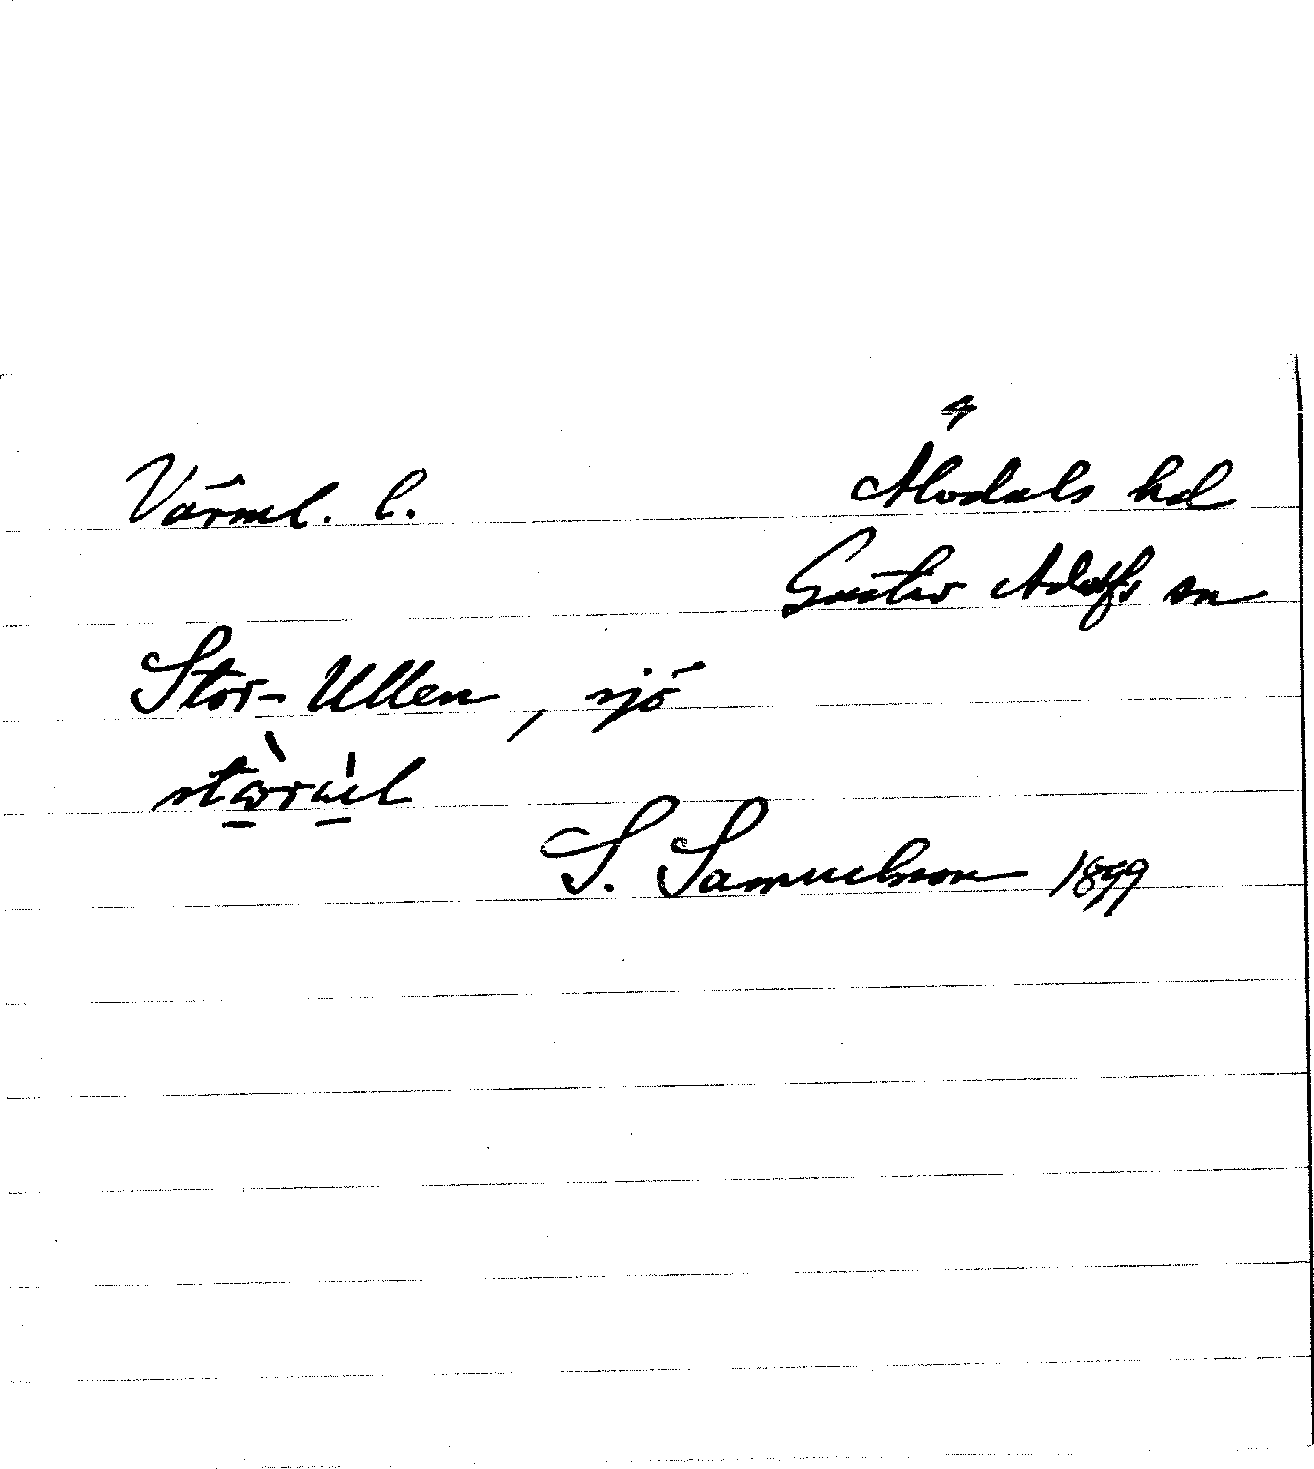 Värml. l. Älvdals hd
Gustav Adolfs sn
Stor-Ullen, sjö
S. Samuelsson 1899